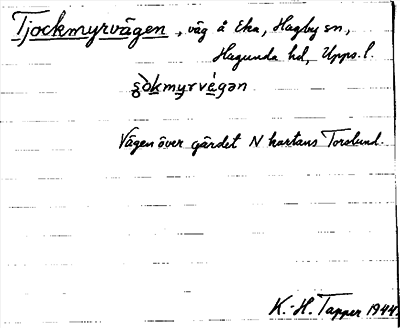 Tjockmyrvägen, väg å Eka, Hagby sn,
Hagunda hd, Upps. l.
şòkmyrvégən
Vägen över gärdet N kartans Torslund.
K.-H. Tapper 1944.